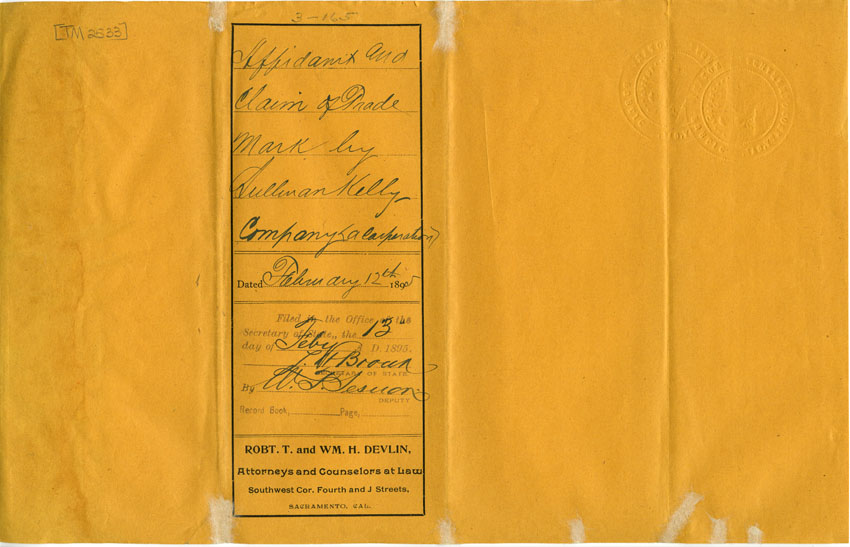 [TM 2533]
3-165
Affidavit and
Claim of Trade
Mark by
Sullivan Kelly
Company (a Corporation)
Dated February 12th 1895
Filed in the Office of the
Secretary of State, the 13th
day of Feby A. D. 1895.
L. H. Brown
SECRETARY OF STATE
By W. T.
DEPUTY
Record Book, Page,
ROBT. T. and WM. H. DEVLIN,
Attorneys and Counselors at Law
Southwest Cor. Fourth and J Streets,
SACRAMENTO, CAL.